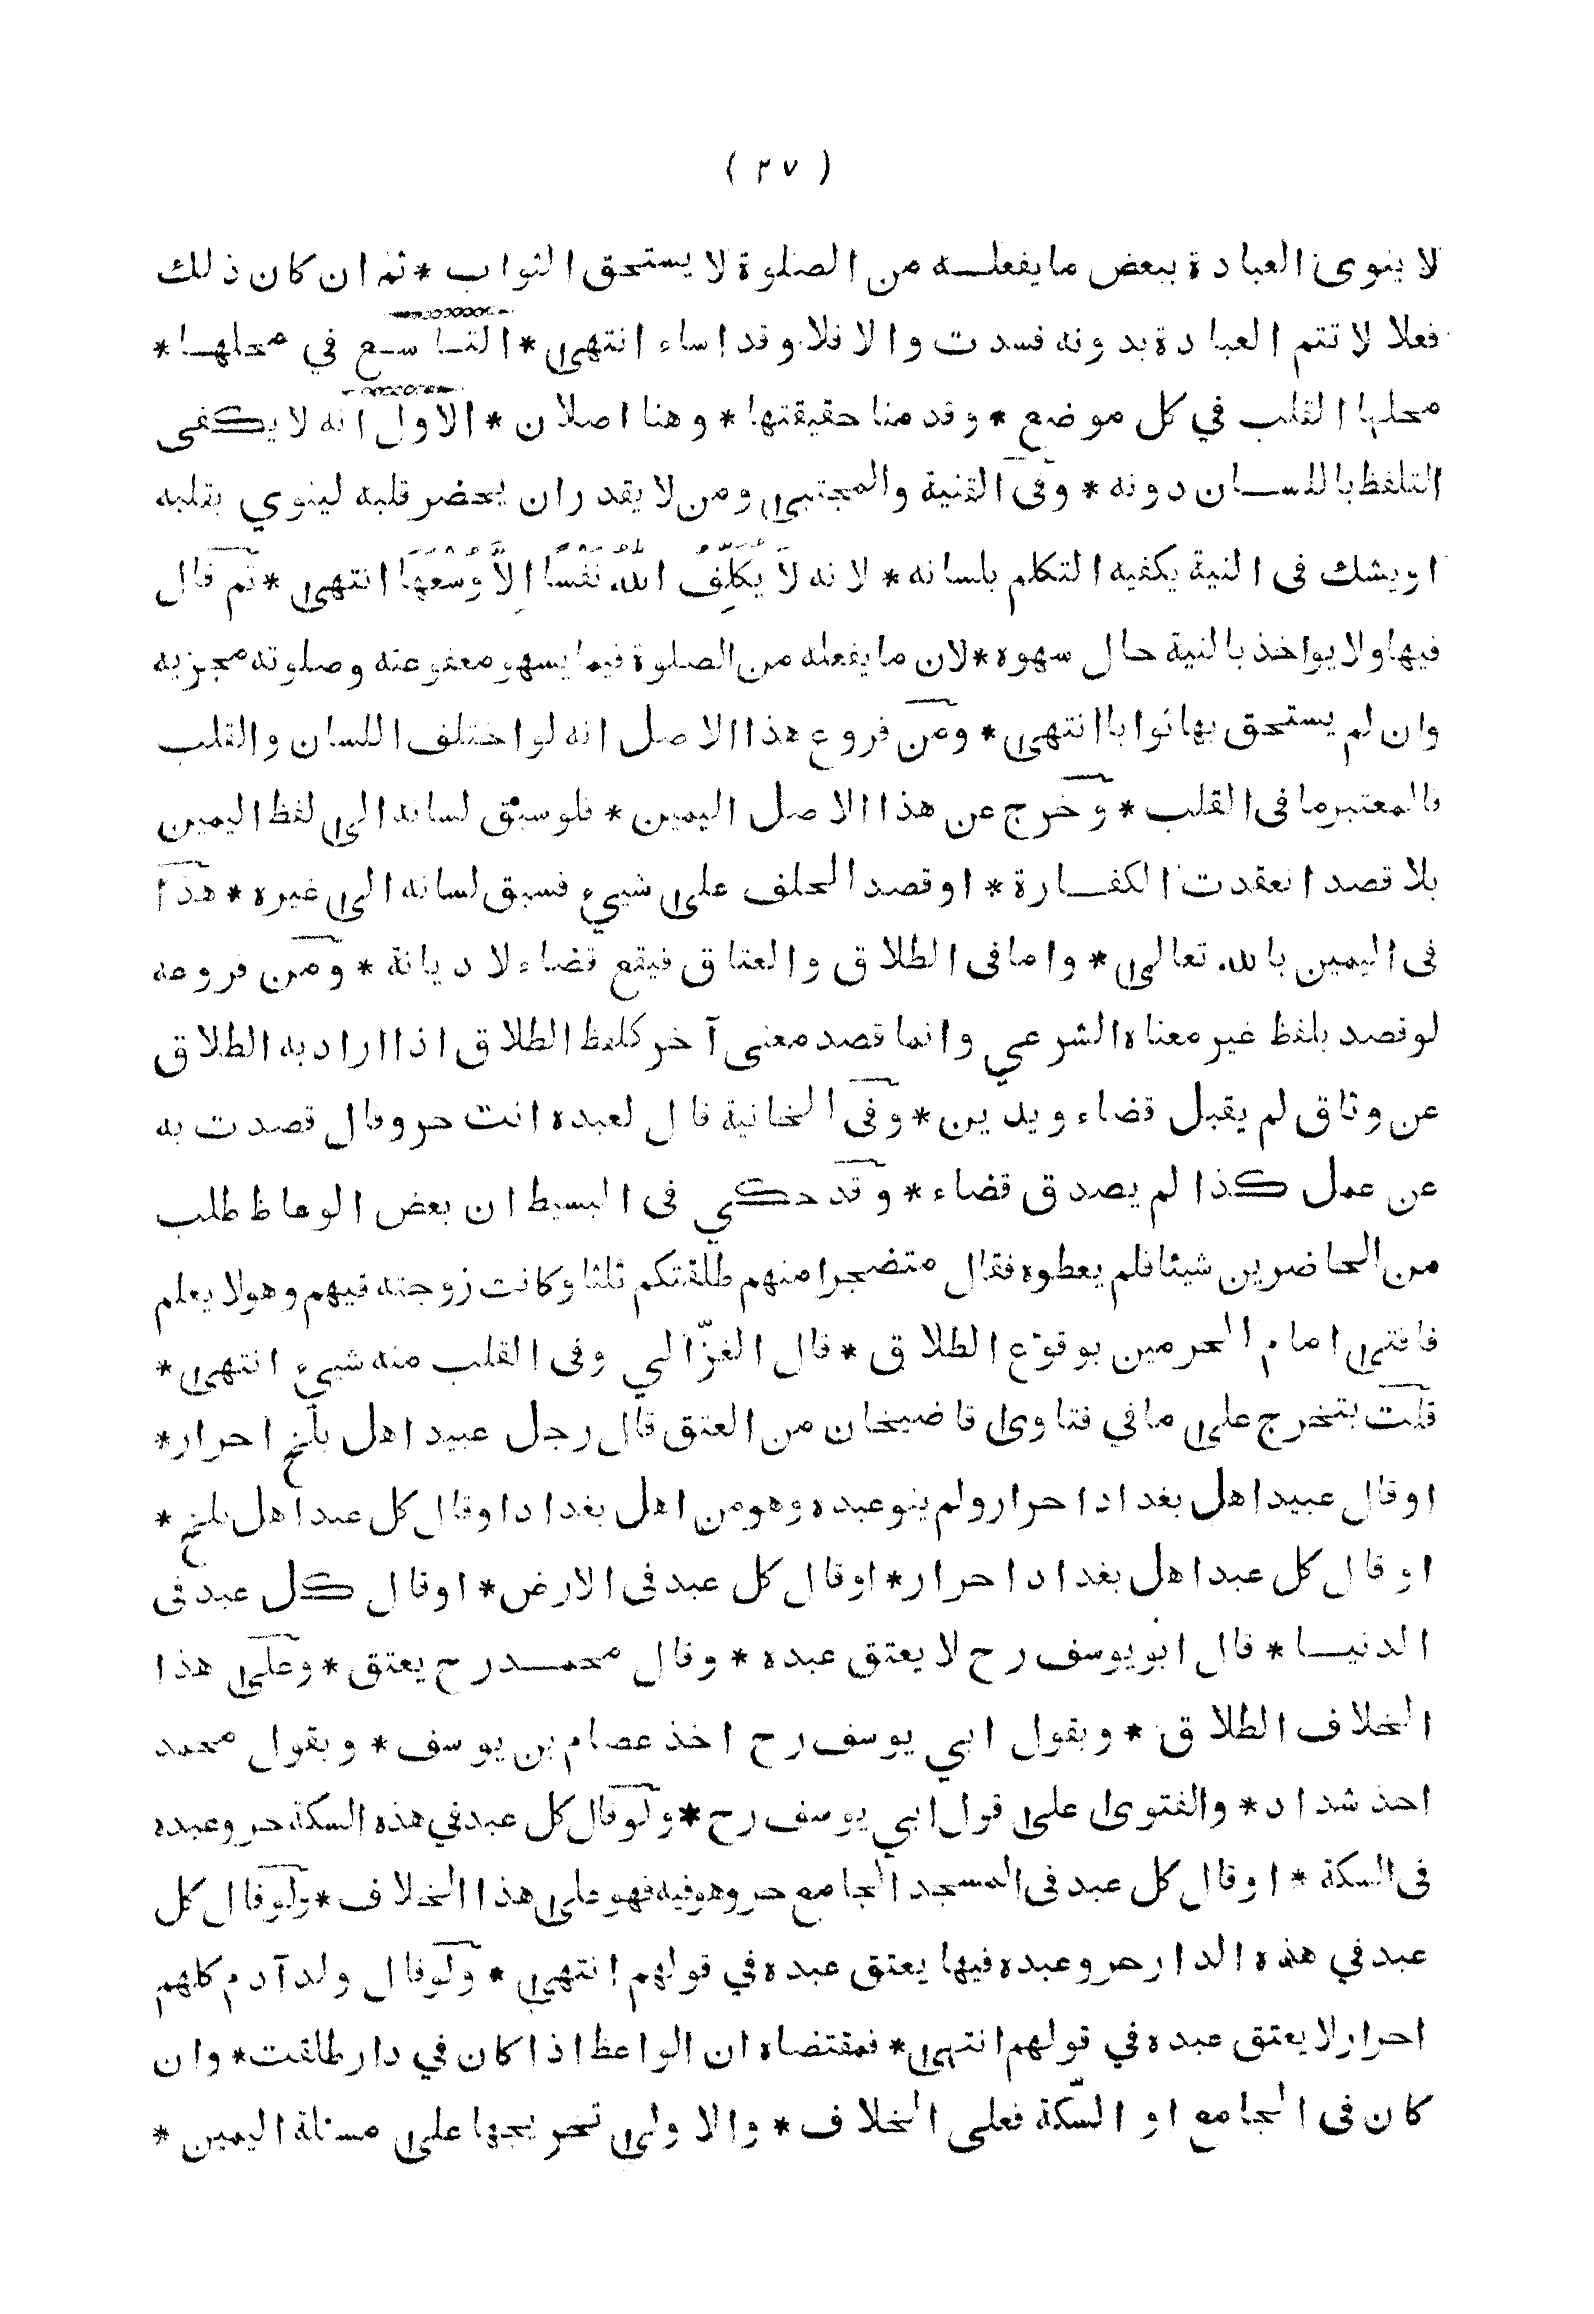 ( ٢٧ )
لا ينوى العبادة ببعض ما يفعلـــه من الصلوة لا يستحق الثواب * ثم ان كان ذلك
فعلا لا تتم العبادة بدونه فسدت والا فلا وقد اساء انتهى * التـاسـع في محلهـا *
محلها القلب في كل موضع * وقدمنا حقيقتها * وهنا اصلان * الاول انه لا يكفى
التلفظ باللســان دونه * وفى القنية والمجتبى ومن لا يقدر ان يحضر قلبه لينوي بقلبه
او يشك فى النية يكفيه التكلم بلسانه * لانه لَا يُكَلِّفُ اللهُ نَفْسًا اِلَّا وُسْعَهَا انتهى * ثم قال
فيها ولا يواخذ بالنية حال سهوه * لان ما يفعله من الصلوة فيما يسهو معفو عنه وصلوته مجزيه
وان لم يستحق بها ثوابا انتهى * ومن فروع هذا الاصل انه لو اختلف اللسان والقلب
فالمعتبر ما فى القلب * وخرج عن هذا الاصل اليمين * فلو سبق لسانه الى لفظ اليمين
بلا قصد انعقدت الكفـــارة * او قصد الحلف على شيء فسبق لسانه الى غيره * هذا
فى اليمين بالله تعالى * واما فى الطلاق والعتاق فيقع قضاء لا ديانة * ومن فروعه
لو قصد بلفظ غير معناه الشرعي وانما قصد معنى آخر كلفظ الطلاق اذا اراد به الطلاق
عن وثاق لم يقبل قضاء ويدين * وفى الخانية قال لعبده انت حر وقال قصدت به
عن عمل كذا لم يصدق قضاء * وقد حكي فى البسيط ان بعض الوعاظ طلب
من الحاضرين شيئا فلم يعطوه فقال متضجرا منهم طلقتكم ثلثا وكانت زوجته فيهم وهو لا يعلم
فافتى امام الحرمين بوقوع الطلاق * قال الغزّالي وفى القلب منه شيء انتهى *
قلت يتخرج على ما في فتاوى قاضيخان من العتق قال رجل عبيد اهل بلخ احرار *
او قال عبيد اهل بغداد احرار ولم ينو عبده وهو من اهل بغداد او قال كل عبد اهل بلخ *
او قال كل عبد اهل بغداد احرار * او قال كل عبد فى الارض * او قال كل عبد فى
الدنيـــا * قال ابو يوسف رح لا يعتق عبده * وقال محمـــد رح يعتق * وعلى هذا
الخلاف الطلاق * وبقول ابي يوسف رح اخذ عصام بن يوسف * وبقول محمد
اخذ شداد * والفتوى على قول ابي يوسف رح * ولو قال كل عبد في هذه السكة حر وعبده
فى السكة * او قال كل عبد فى المسجد الجامع حر وهو فيه فهو على هذا الخلاف * ولو قال كل
عبد في هذه الدار حر وعبده فيها يعتق عبده في قولهم انتهى * ولو قال ولد آدم كلهم
احرار لا يعتق عبده في قولهم انتهى * فمقتضاه ان الواعظ اذا كان في دار طلقت * وان
كان فى الجامع او السّكة فعلى الخلاف * والاولى تخريجها على مسئلة اليمين *